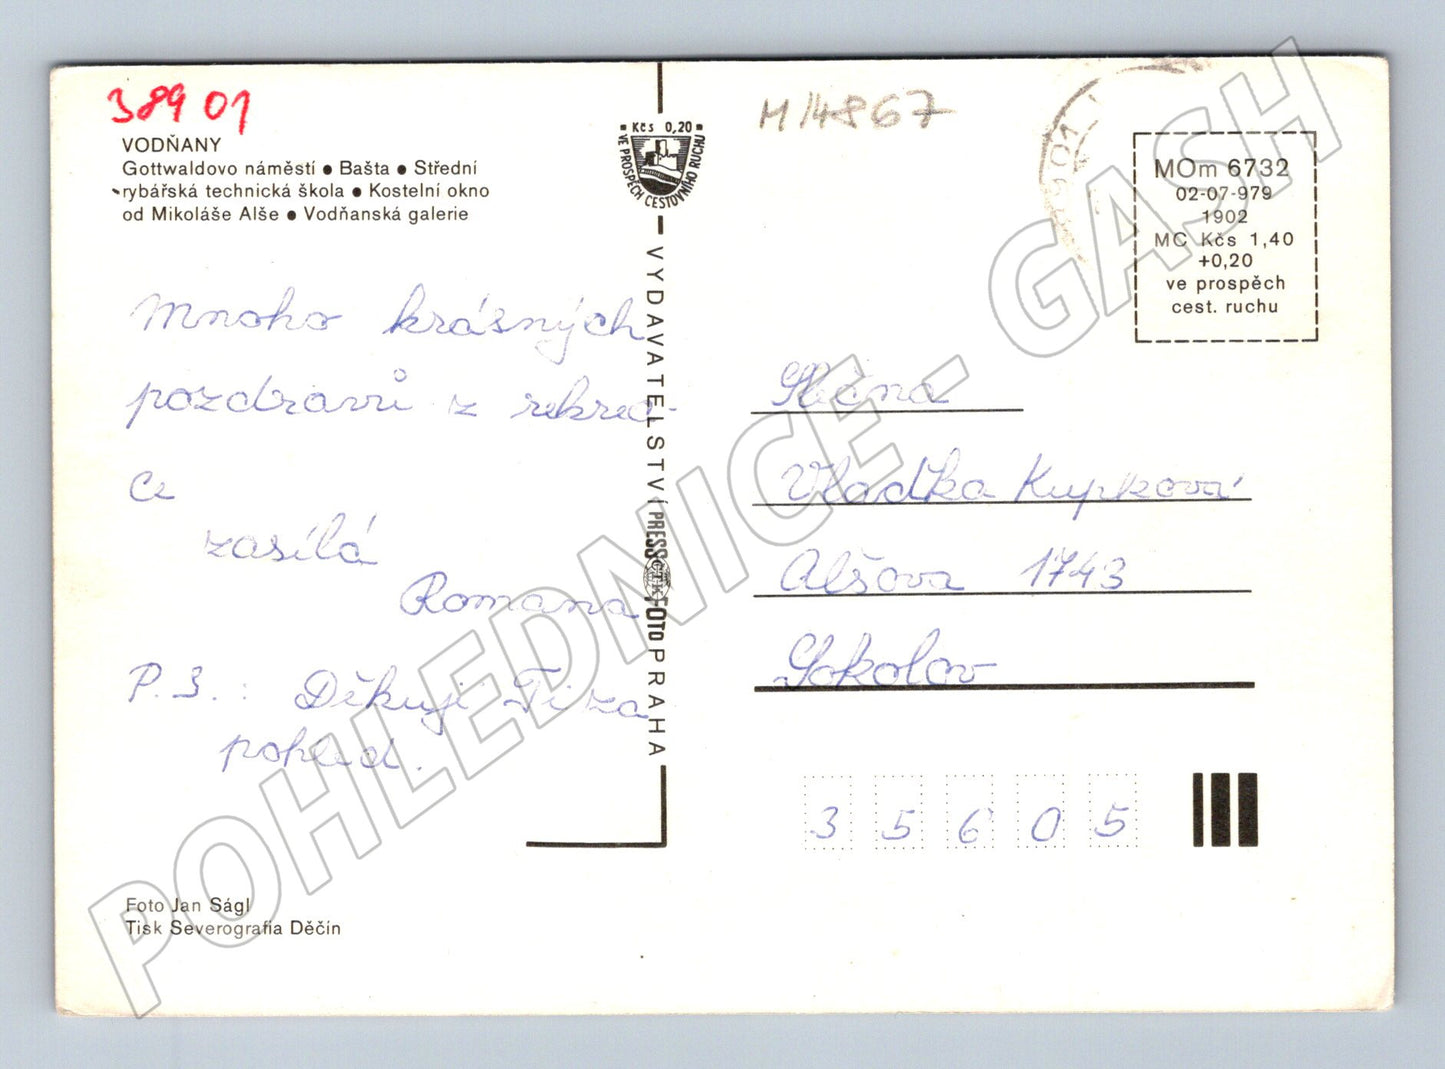 38901
VODŇANY
Gottwaldovo náměstí ● Bašta ● Střední
rybářská technická škola ● Kostelní okno
od Mikoláše Alše ● Vodňanská galerie
Mnoho krásných
pozdravů z rekrea-
ce
zasílá
Romana
P.S.: Děkuji Ti za
pohled.
Foto Jan Ságl
Tisk Severografia Děčín
Kčs 0,20
VE PROSPĚCH CESTOVNÍHO RUCHU
VYDAVATELSTVÍ PRESSFOTO PRAHA
ČTK
M/4867
MOm 6732
02-07-979
1902
MC Kčs 1,40
+0,20
ve prospěch
cest. ruchu
Slečna
Vlaďka Kupková
Alšova 1743
Sokolov
35605
POHLEDNICE - GASH